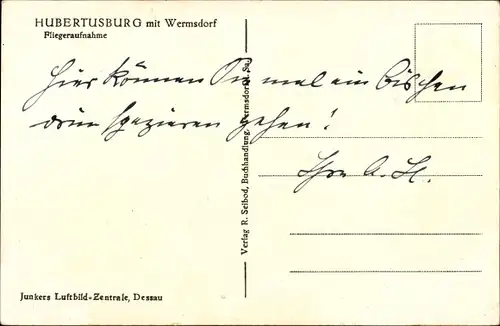 HUBERTUSBURG mit Wermsdorf
Fliegeraufnahme
Hier können Sie mal ein bischen
drin spazieren gehen!
Ihre A. H.
Verlag R. Seibod, Buchhandlung, Wermsdorf i. Sa.
Junkers Luftbild-Zentrale, Dessau